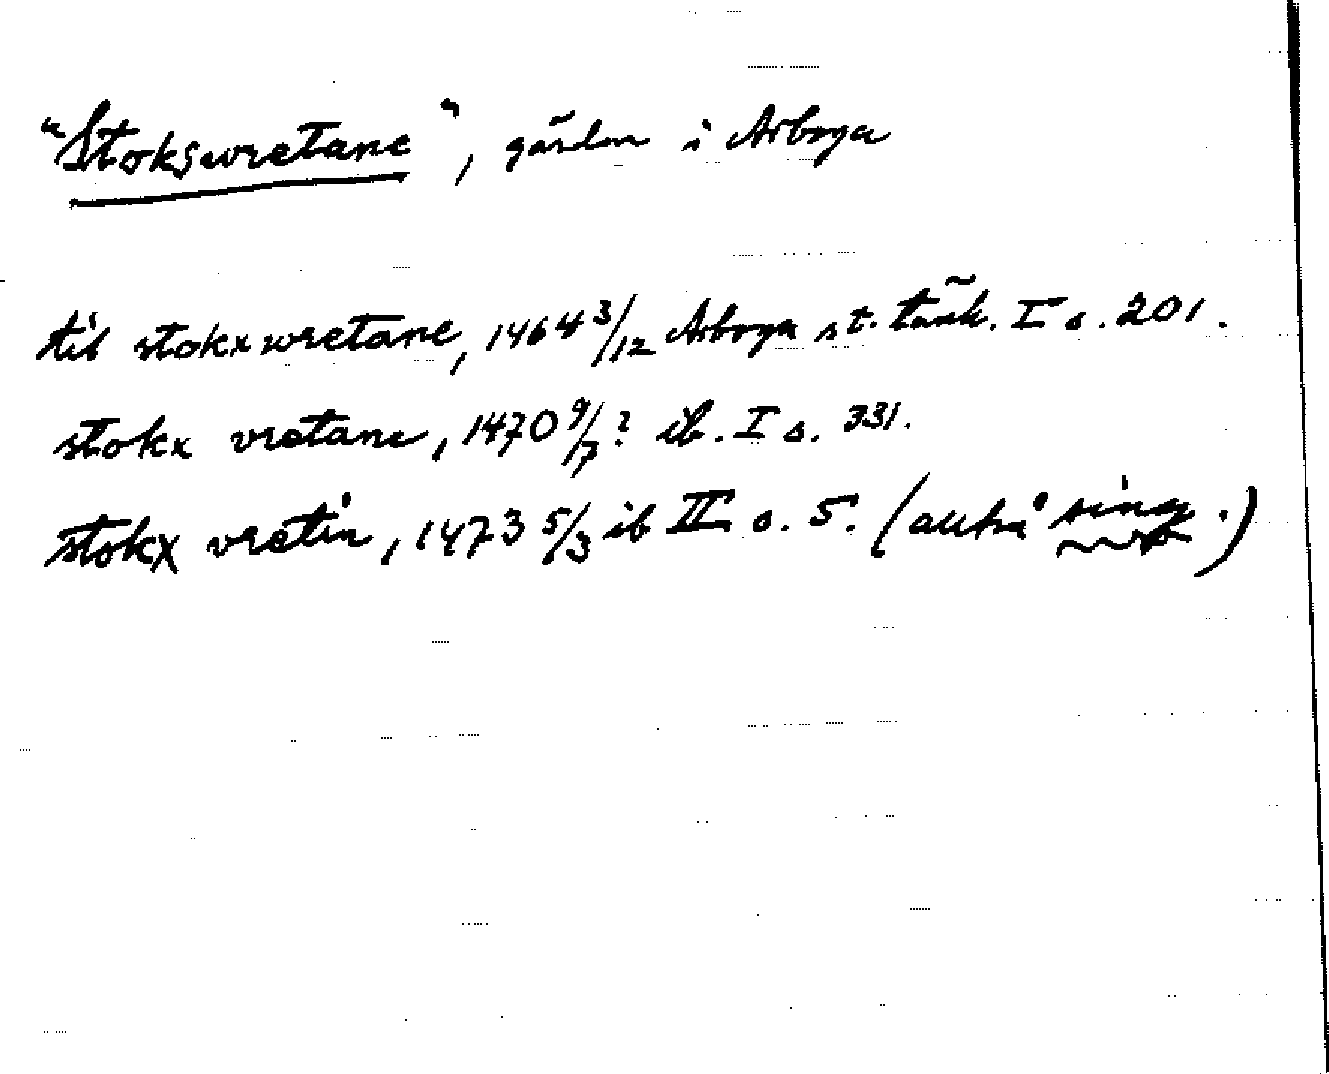 "Stokswretane", gärden i Arboga
til stokxwretane, 1464 3/12 Arboga st. tänk. I s. 201.
stokx vretane, 1470 9/7? ib. I s. 331.
stokx vretin, 1473 5/3 ib II s. 5. (alltså sing.)